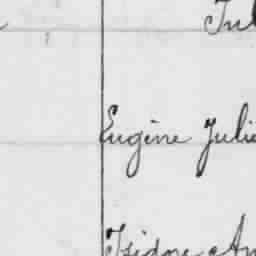 Jul
Eugène Julie
Isidore An